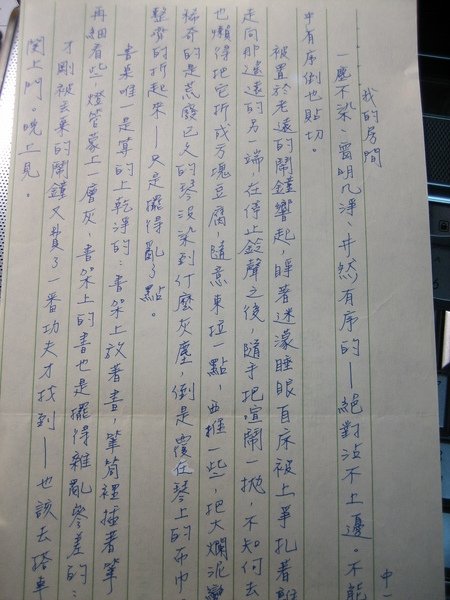 我的房間
中一
一塵不染、窗明几淨、井然有序的——絕對沾不上邊。不能
中有序倒也貼切。
被置於老遠的鬧鐘響起,睜著迷濛睡眼自床被上爭扎着離
走向那遙遠的另一端,在停止鈴聲之後,隨手把喧鬧一拋,不知何去
也懶得把它折成方塊豆腐,隨意東拉一點,西推一些,把大爛泥變
稀奇的是荒廢已久的琴沒染到什麼灰塵,倒是覆在琴上的布巾
整齊的折起來——只是擺得亂了點。
書桌唯一是算的上乾淨的:書架上放著書,筆筒裡插著筆
再細看些,燈管蒙上一層灰,書架上的書也是擺得雜亂參差的:
才剛被丟棄的鬧鐘又費了一番功夫才找到——也該去搭車
関上門。晚上見。